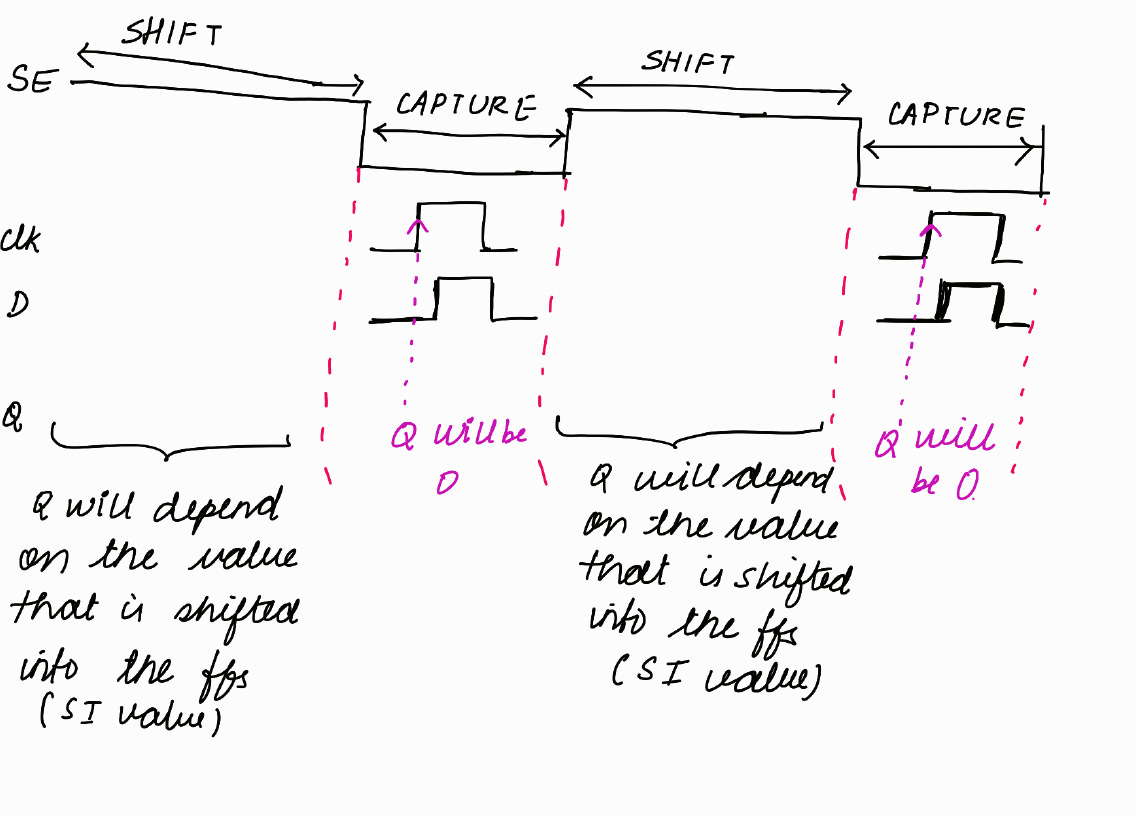 SHIFT
SE
CAPTURE
SHIFT
CAPTURE
Clk
D
Q
Q will be
0
Q will
be 0.
Q will depend
on the value
that is shifted
into the ffs
(SI value)
Q will depend
on the value
that is shifted
into the ffs
(SI value)